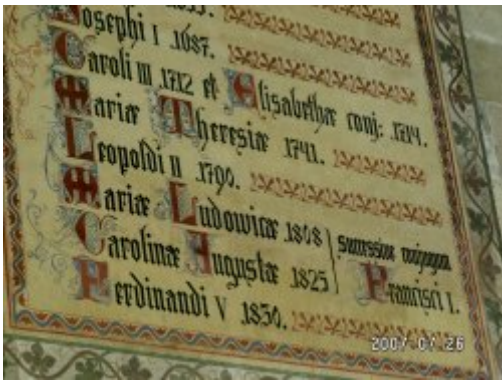 Josephi I 1687.
Caroli III 1712 et Elisabethæ conj: 1714.
Mariæ Theresiæ 1741.
Leopoldi II 1790.
Mariæ Ludowicæ 1808
Carolinæ Augustæ 1825
successive conjugum
Francisci I.
Ferdinandi V 1830.
2007.07.26